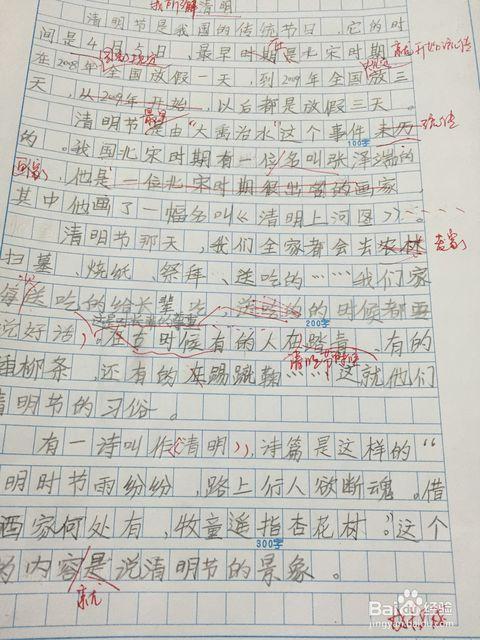 我所了解清明
清明节是我国的传统节日，它的时
间是4月5日，最早时期是北宋时期就开始流传
在2008年国家规定全国放假一天，到2009年全国放三
天，从2009年开始，以后都是放假三天。
最早
清明节是由“大禹治水”这个事件来历 流传
100字
的。我国北宋时期有一位名叫张泽端的
画家，他是一位北宋时期很出名的画家
其中他画了一幅名叫《清明上河图》。
清明节那天，我们全家都会去农林 老家
扫墓、烧纸、祭拜、送吃的……我们家
每送吃的给长辈 的时候都要
这是对长辈的尊重 200字
说好话。在古时候有的人在踏青、有的
清明节时候
插柳条，还有的在踢蹴鞠……这就他们
清明节的习俗。
有一诗叫作《清明》，诗篇是这样的“
明时节雨纷纷，路上行人欲断魂。借
酒家何处有，牧童遥指杏花村。”这个
300字
内容是说清明节的景象。
就
Baidu经验
jingyan.baidu.com